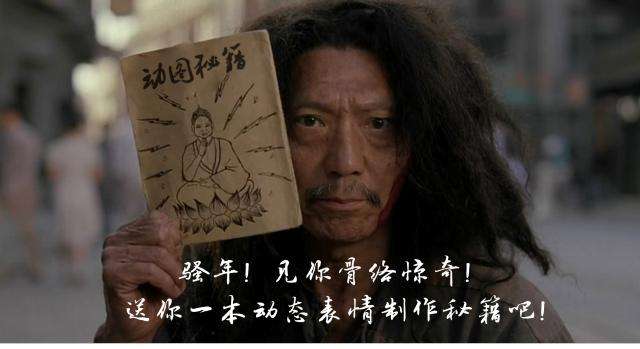 动图秘籍
骚年！见你骨络惊奇！
送你一本动态表情制作秘籍吧！